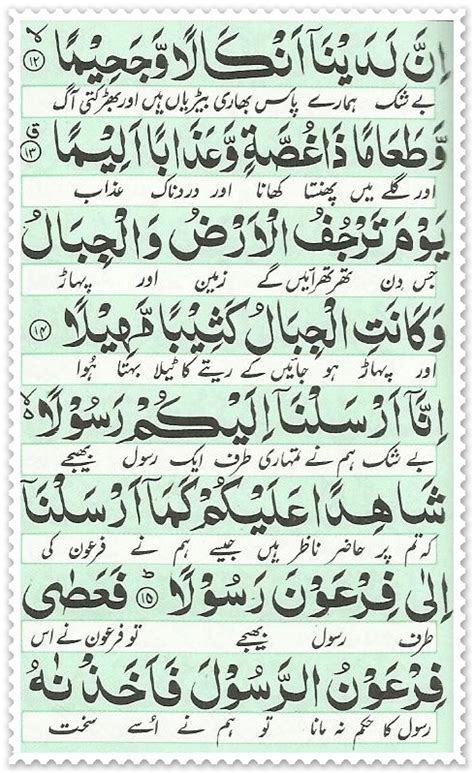 اِنَّ لَدَيْنَاۤ اَنْكَالًا وَّجَحِيْمًا ۙ ﴿۱۲﴾
بے شک ہمارے پاس بھاری بیڑیاں ہیں اور بھڑکتی آگ
وَّطَعَامًا ذَا غُصَّةٍ وَّعَذَابًا اَلِيْمًا ۗ ﴿۱۳﴾
اور گلے میں پھنستا کھانا اور دردناک عذاب
يَوْمَ تَرْجُفُ الْاَرْضُ وَالْجِبَالُ
جس دن تھرتھرائیں گے زمین اور پہاڑ
وَكَانَتِ الْجِبَالُ كَثِيْبًا مَّهِيْلًا ﴿۱۴﴾
اور پہاڑ ہو جائیں گے ریتے کا ٹیلا بہتا ہُوا
اِنَّاۤ اَرْسَلْنَاۤ اِلَيْكُمْ رَسُوْلًا ۙ
بے شک ہم نے تمہاری طرف ایک رسول بھیجے
شَاهِدًا عَلَيْكُمْ كَمَاۤ اَرْسَلْنَاۤ
کہ تم پر حاضر ناظر ہیں جیسے ہم نے فرعون کی
اِلٰى فِرْعَوْنَ رَسُوْلًا ؕ ﴿۱۵﴾ فَعَصٰى
طرف رسول بھیجے تو فرعون نے اس
فِرْعَوْنُ الرَّسُوْلَ فَاَخَذْنٰهُ
رسول کا حکم نہ مانا تو ہم نے اُسے سخت